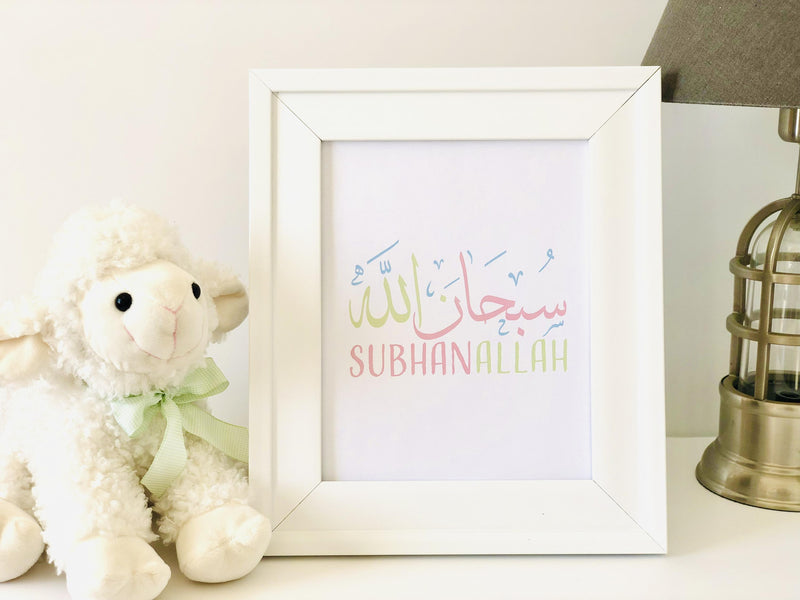 سُبحَانَ اللّٰه
SUBHANALLAH